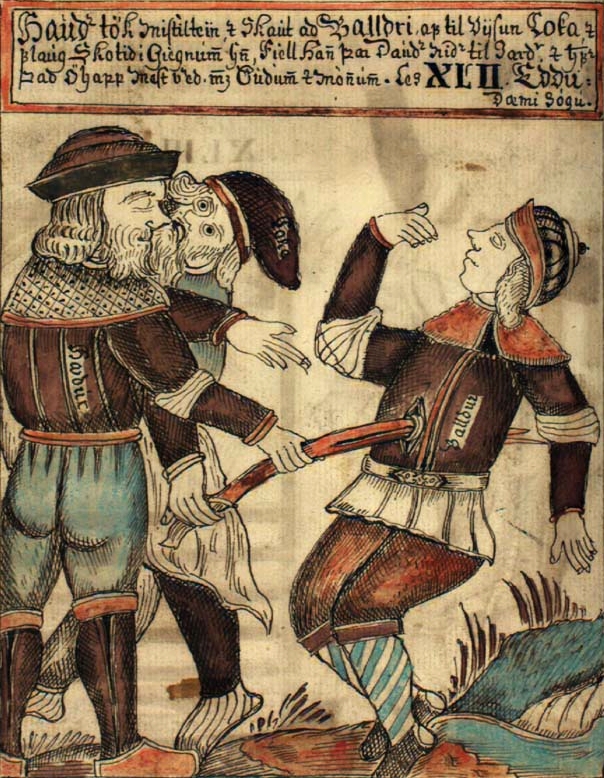 Haudr tök Mistiltein & Skaut ad Balldri, ap til Vijsun Loka &
þlaug Skotid i Giegnum hn̄, Fiell Han̄ þar Daudr nidr til Jardr &
Þad Ohapp mest ved. m; Gudum̄ & Monum. Les XLII. Eddu:
Dæmi Sogu.
Loke
Hodur
Balldur